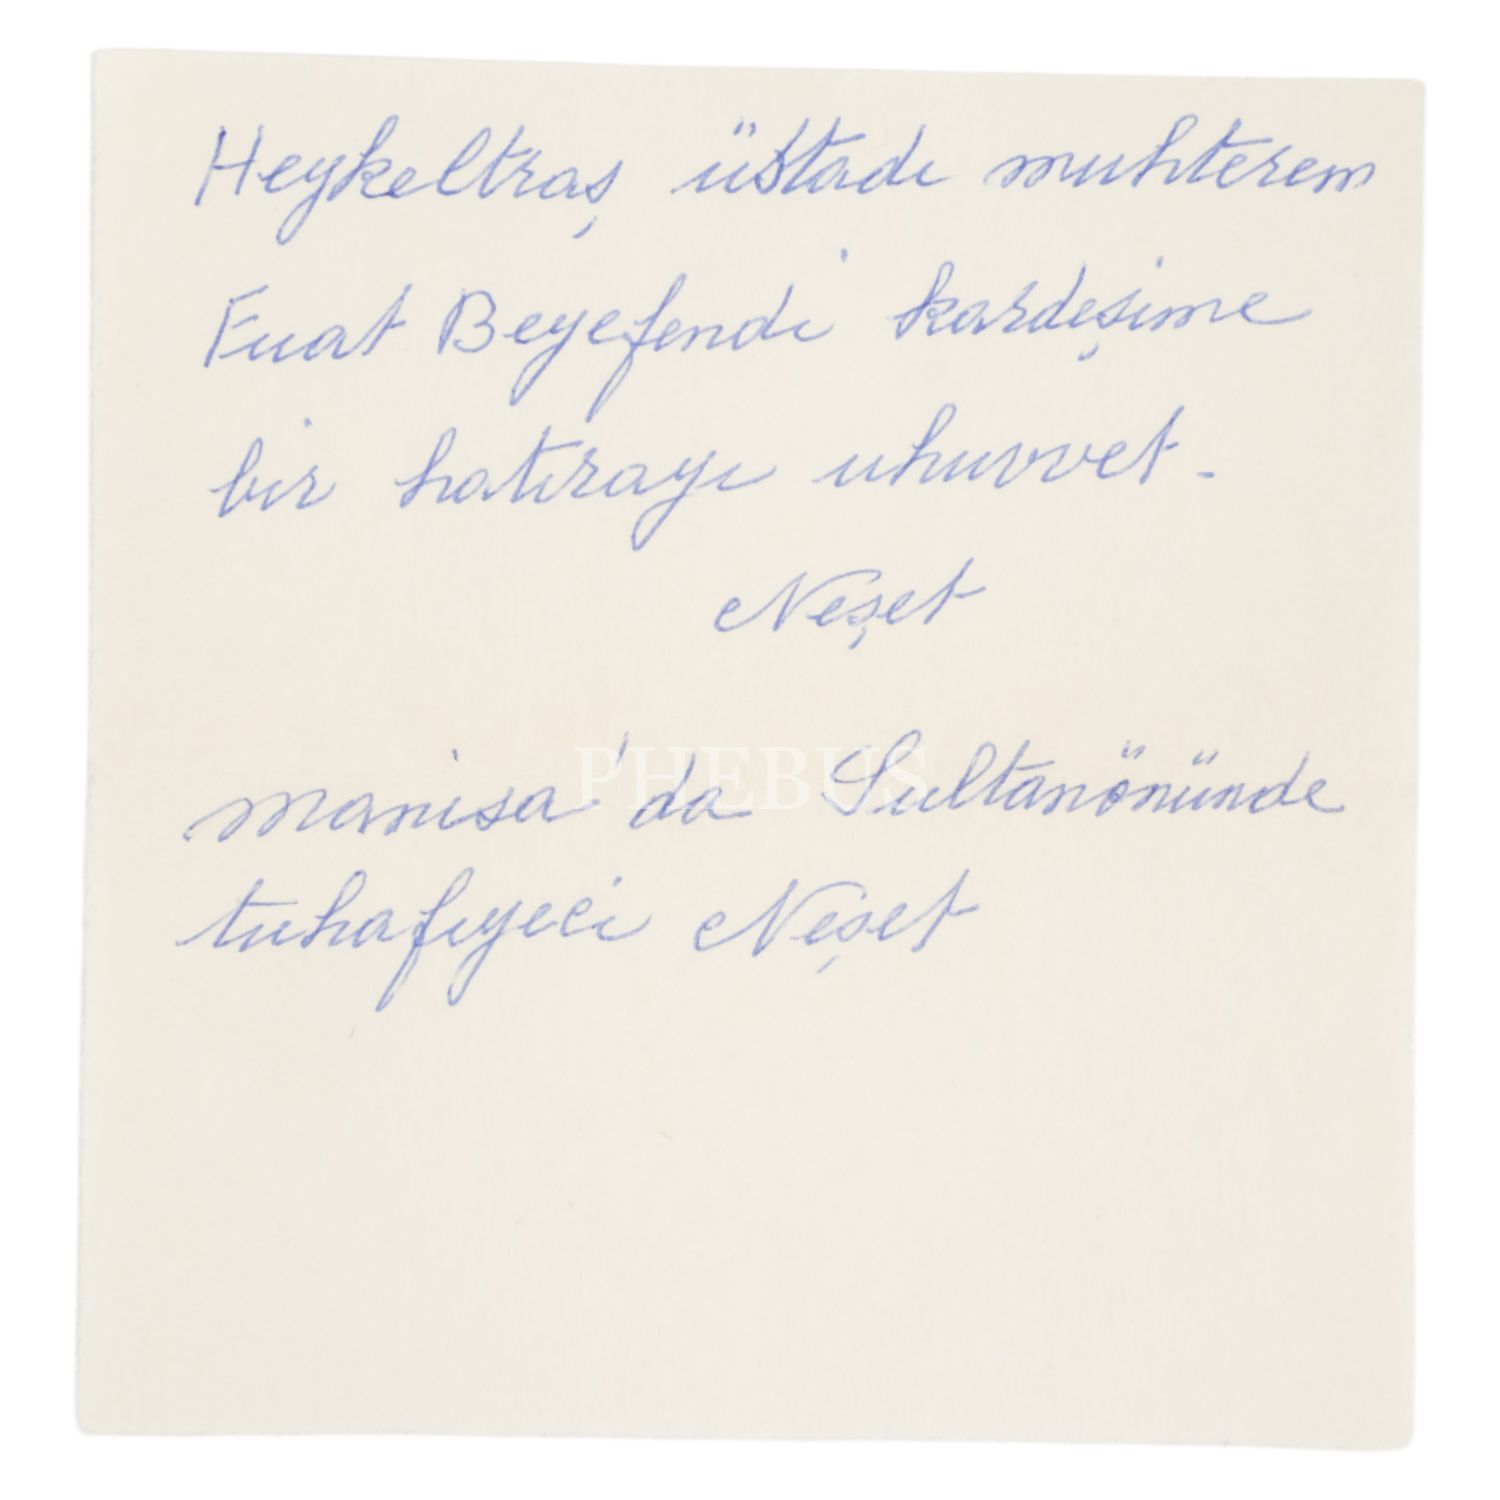 Heykeltraş üstadı muhterem
Fuat Beyefendi kardeşime
bir hatırayı uhuvvet-
Neşet
PHEBUS
manisa'da Sultanönünde
tuhafıyeci Neşet